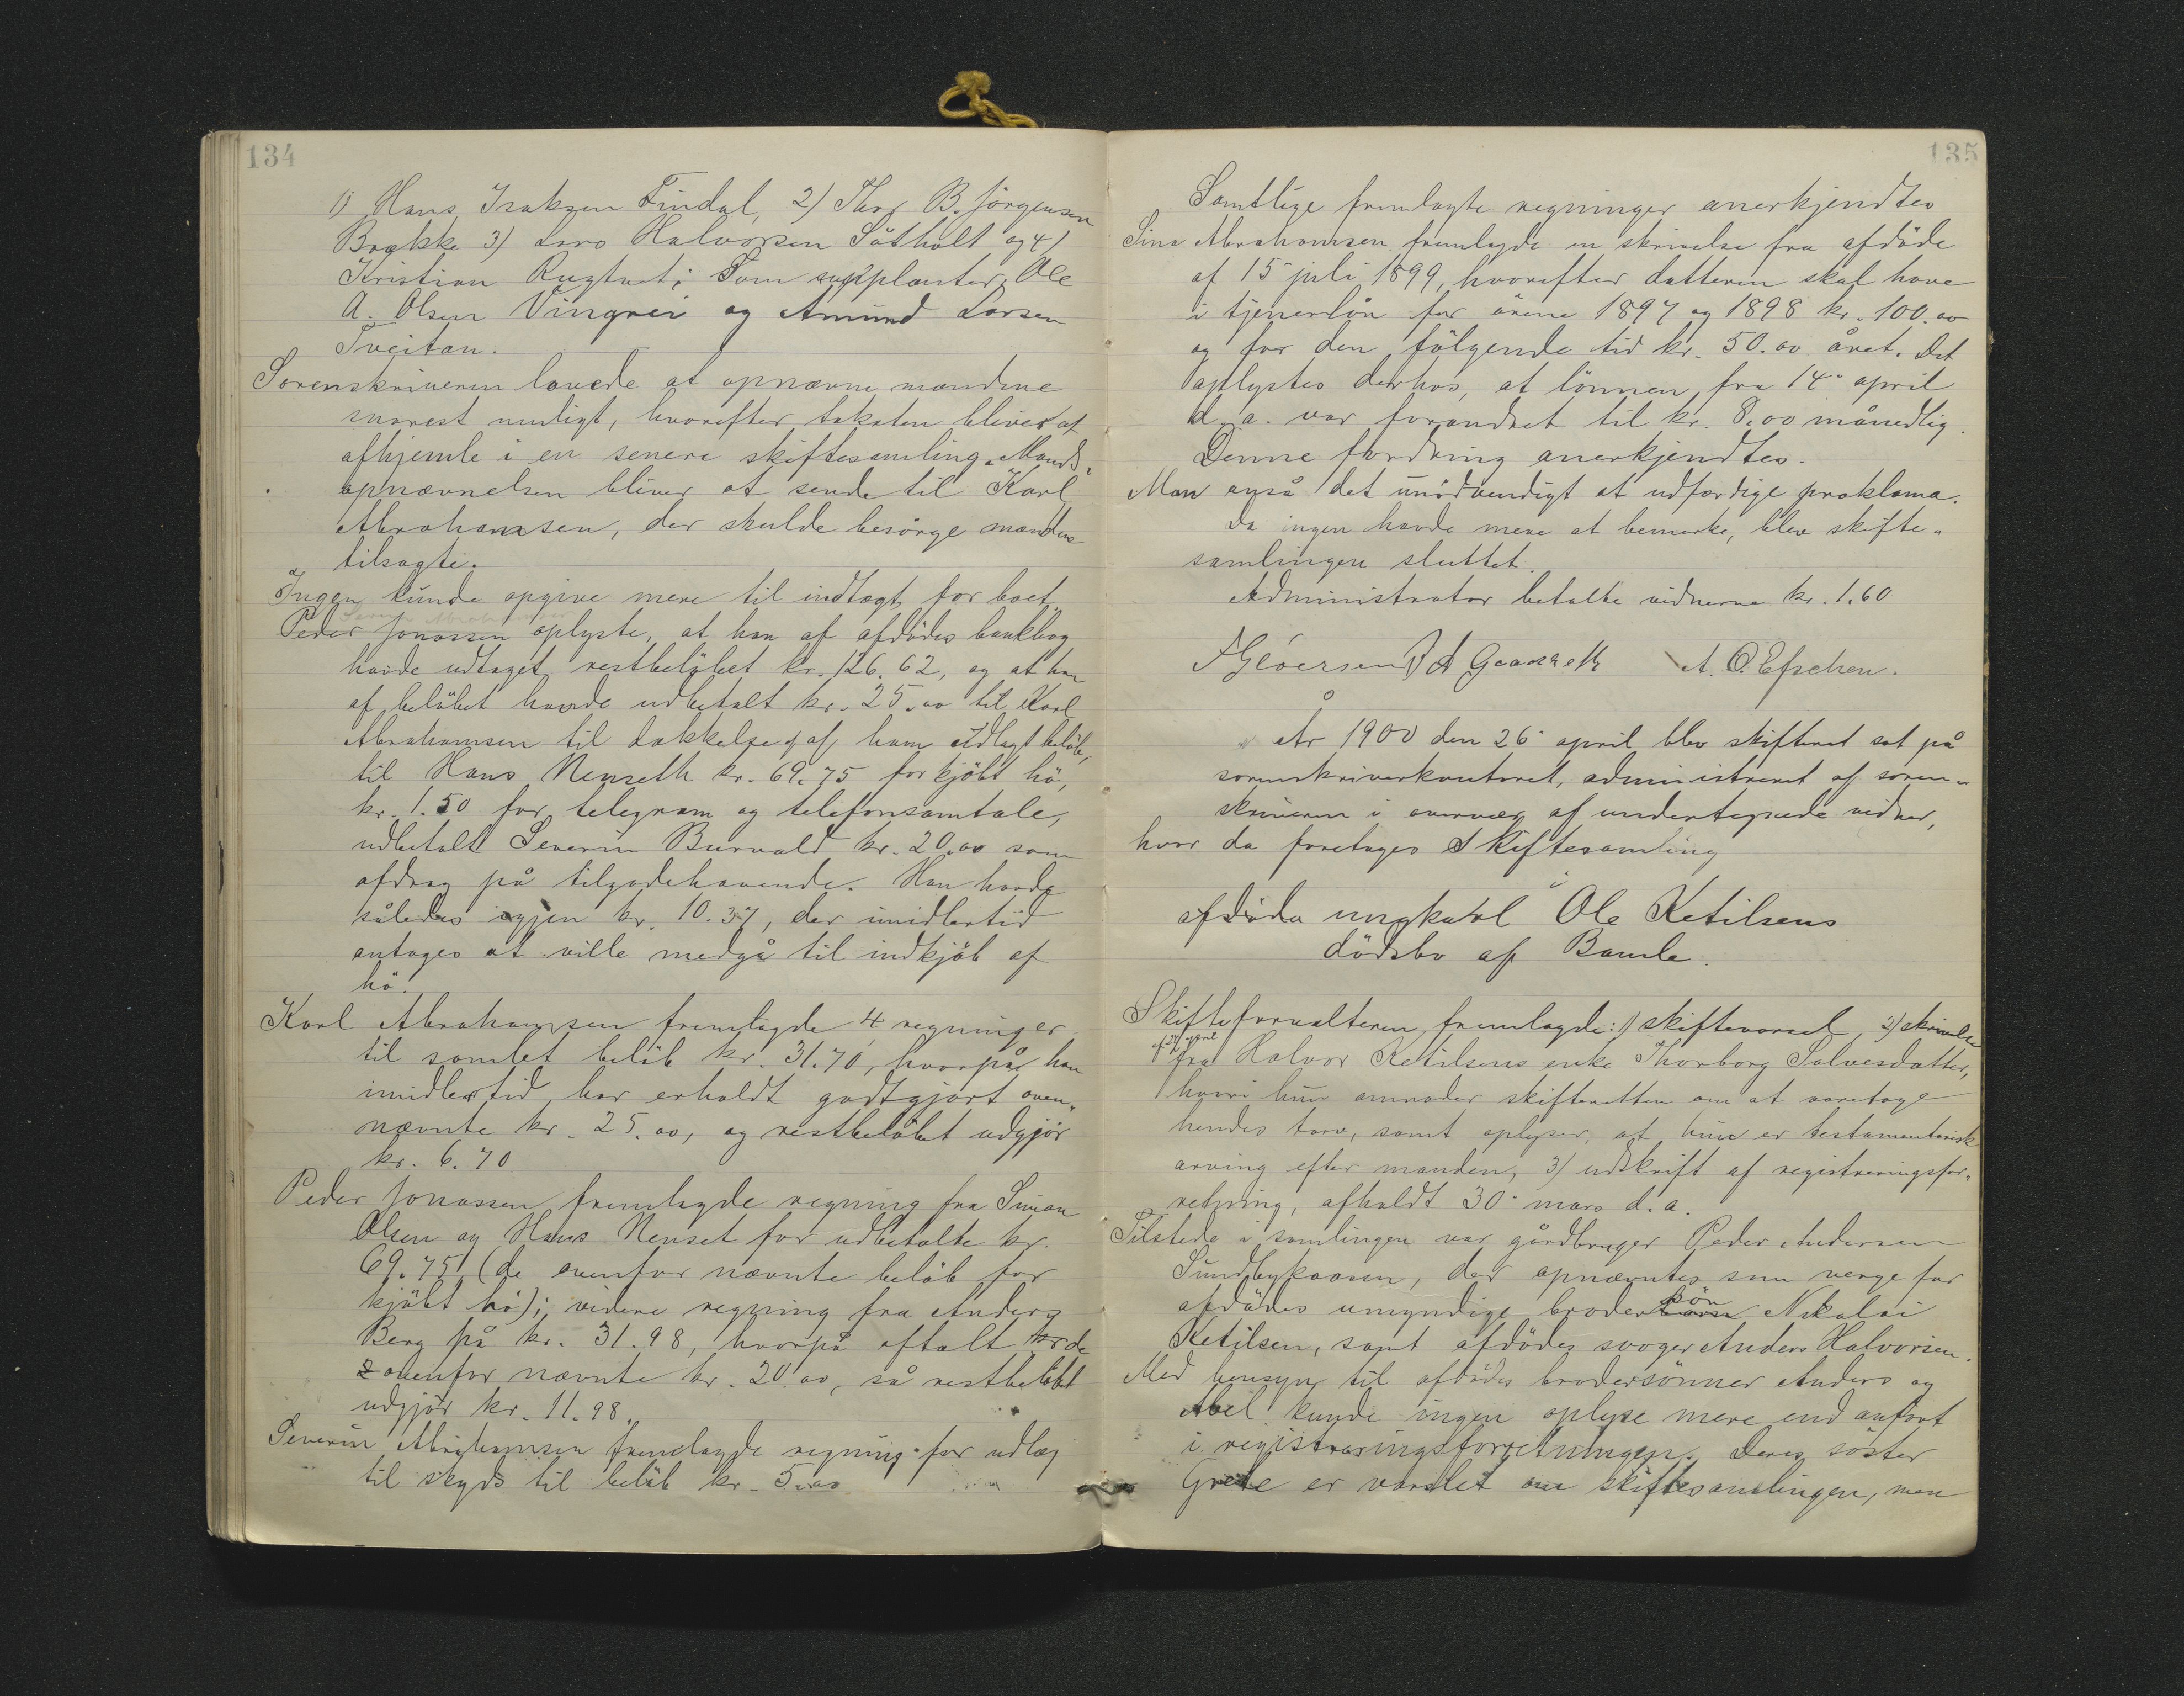 134
1) Hans Isaksen Findal, 2) Thor B. Jörgensen
Brække 3) Lars Halvorsen Såtholt og 4)
Kristian Rugtvet; Som supplanter Ole
A. Olsen Vingrei og Amund Larsen
Tveitan.
Sorenskriveren lovede at opnævne mændene
snarest muligt, hvorefter taksten bliver at
afhjemle i en senere skiftesamling. Mands-
opnævnelsen bliver at sende til Karl
Abrahamsen, der skulde besörge mændene
tilsagte.
Ingen kunde opgive mere til indtægt for boet.
Peder Jonassen oplyste, at han af afdödes bankbog
havde udtaget restbelöbet kr. 126.62, og at han
af belöbet havde udbetalt kr. 25.00 til Karl
Abrahamsen til dækkelse af ham udlagt belöb,
til Hans Nenseth kr. 69.75 for kjöbt hö,
kr. 1.50 for telegram og telefonsamtale,
udbetalt Severin Burvald kr. 20.00 som
afdrag på tilgodehavende. Han havde
således igjen kr. 10.37, der imidlertid
antages at ville medgå til indkjöb af
hö.
Karl Abrahamsen fremlagde 4 regninger
til samlet belöb kr. 31.70, hvorpå han
imidlertid har erholdt godtgjort oven-
nævnte kr. 25.00, og restbelöbet udgjör
kr. 6.70.
Peder Jonassen fremlagde regning fra Simon
Olsen og Hans Nenset for udbetalte kr.
69.75 (de ovenfor nævnte belöb for
kjöbt hö); videre regning fra Anders
Berg på kr. 31.98, hvorpå aftalt de
ovenfor nævnte kr. 20.00, så restbelöbet
udgjör kr. 11.98.
Severin Abrahamsen fremlagde regning for udlæg
til skyds til belöb kr. 5.00
135
Samtlige fremlagte regninger anerkjendtes
Sina Abrahamsen fremlagde en skrivelse fra afdöde
af 15 juli 1899, hvorefter datteren skal have
i tjenerlön for årene 1897 og 1898 kr. 100.00
og for den fölgende tid kr. 50.00 året. Det
oplystes derhos, at lönnen fra 14 april
d. a. var forandret til kr. 8.00 månedlig.
Denne fordring anerkjendtes.
Man anså det unödvendigt at udfærdige proklama.
Da ingen havde mere at bemerke, blev skifte-
samlingen sluttet.
Administrator betalte vidnerne kr. 1.60
A. O. Efschen.
År 1900 den 26 april blev skifteret sat på
sorenskriverkontoret, administreret af soren-
skriveren i overvær af undertegnede vidner,
hvor da foretages Skiftesamling
i
afdöde ungkarl Ole Ketilsens
dödsbo af Bamle.
Skifteforvalteren fremlagde: 1) skiftevarsel, 2) skrivelse
fra Halvor Ketilsens enke Thorborg Salvesdatter,
hvori hun anmoder skifteretten om at varetage
hendes tarv, samt oplyser, at hun er testamentarisk
arving efter manden, 3) udskrift af registreringsfor-
retning, afholdt 30 mars d. a.
Tilstede i samlingen var gårdbruger Peder Andersen
Sundbykaasen, der opnævntes som verge for
afdödes umyndige broder sön Nikolai
Ketilsen, samt afdödes svoger Anders Halvorsen.
Med hensyn til afdödes brodersönner Anders og
Abel kunde ingen oplyse mere end anfört
i registreringsforretningen. Deres söster
Grete er varslet om skiftesamlingen, men